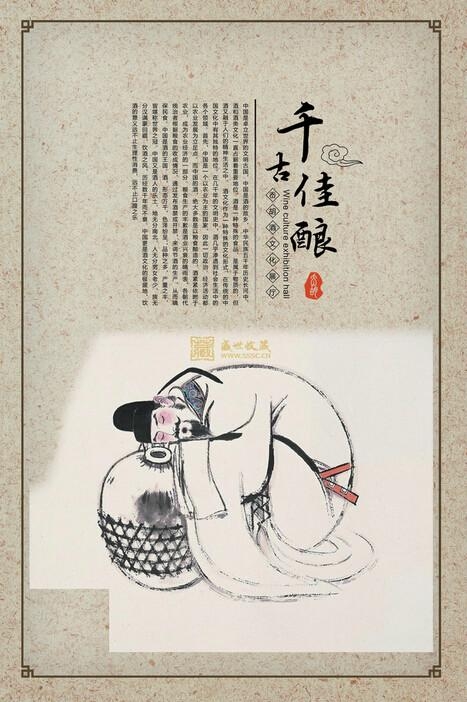 千古佳酿
Wine culture exhibition hall
胡酒文化展厅
中国是卓立世界的文明古国，中国是酒的故乡，中华民族五千年历史长河中，
酒和酒类文化一直占据着重要地位，酒是一种特殊的食品，是属于物质的，但
酒又融于人们的精神生活之中。酒文化作为一种特殊的文化形式，在传统的中
国文化中有其独特的地位，在几千年的文明史中，酒几乎渗透到社会生活中的
各个领域。首先，中国是一个以农业为主的国家，因此一切政治、经济活动都
以农业发展为立足点。而中国的酒，绝大多数是以粮食酿造的，酒紧紧依附于
农业，成为农业经济的一部分。粮食生产的丰歉是酒业兴衰的晴雨表，各朝代
统治者根据粮食的收成情况，通过发布酒禁或开禁，来调节酒的生产，从而确
保民食。中国是酒的王国。酒，形态万千，色泽纷呈，品种之多，产量之丰，
皆堪称世界之冠。中国又是酒人的乐土，地无分南北，人无分男女老少，族无
分汉满蒙回藏，饮酒之风，历经数千年而不衰。中国更是酒文化的极盛地，饮
酒的意义远不止生理性消费，远不止口腹之乐
藏 盛世收藏
WWW.SSSC.CN